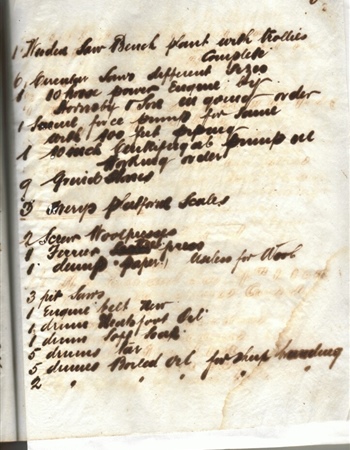 1 Wooden Saw Bench plant with Trollies
Complete
6 Circular Saws different Sizes
1 10 horse power Engine by
Hornsby & Sons in going order
1 Samuel force pump for
with 400 feet piping
1 10 inch Centrifugal pump
Working order
9 Grindstones
3 Averys platform Scales
2 Screw Woolpresses
1 Ferrier press
1 dump
for Wool
3 pit Saws
1 Engine belt New
1 drum Neatsfoot Oil
1 drum Soft Soap
5 drums Tar
5 drums Boiled Oil for sheep branding
2 " " " "